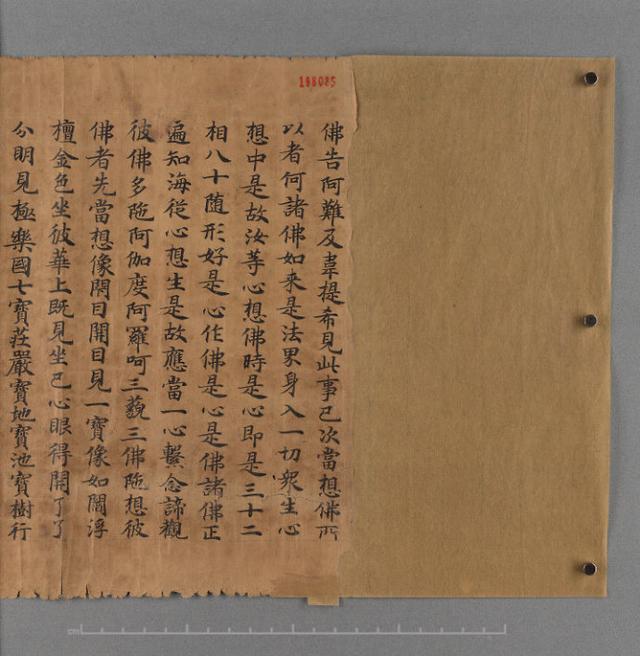 198085
佛告阿難及韋提希見此事已次當想佛所
以者何諸佛如來是法界身入一切衆生心
想中是故汝等心想佛時是心即是三十二
相八十随形好是心作佛是心是佛諸佛正
遍知海從心想生是故應當一心繫念諦觀
彼佛多陁阿伽度阿羅呵三藐三佛陁想彼
佛者先當想像閇目開目見一寶像如閻浮
檀金色坐彼華上既見坐已心眼得開了了
分明見極樂國七寶莊嚴寶地寶池寶樹行
cm